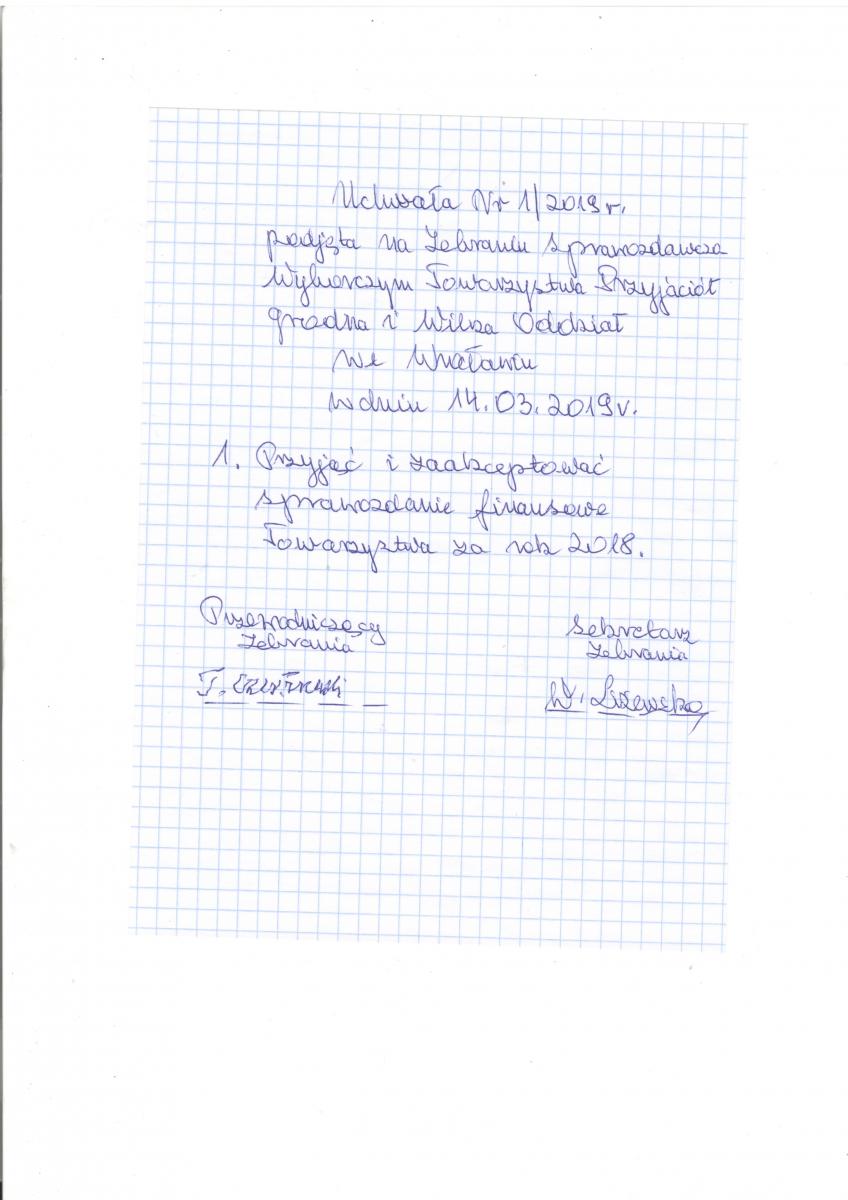 Uchwała Nr 1/2019 r.
podjęta na Zebraniu sprawozdawczo
Wyborczym Towarzystwa Przyjaciół
Grodna i Wilna Oddział
we Wrocławiu
w dniu 14.03.2019 r.
1. Przyjąć i zaakceptować
sprawozdanie finansowe
Towarzystwa za rok 2018.
Przewodniczący Sekretarz
Zebrania Zebrania
T. W.